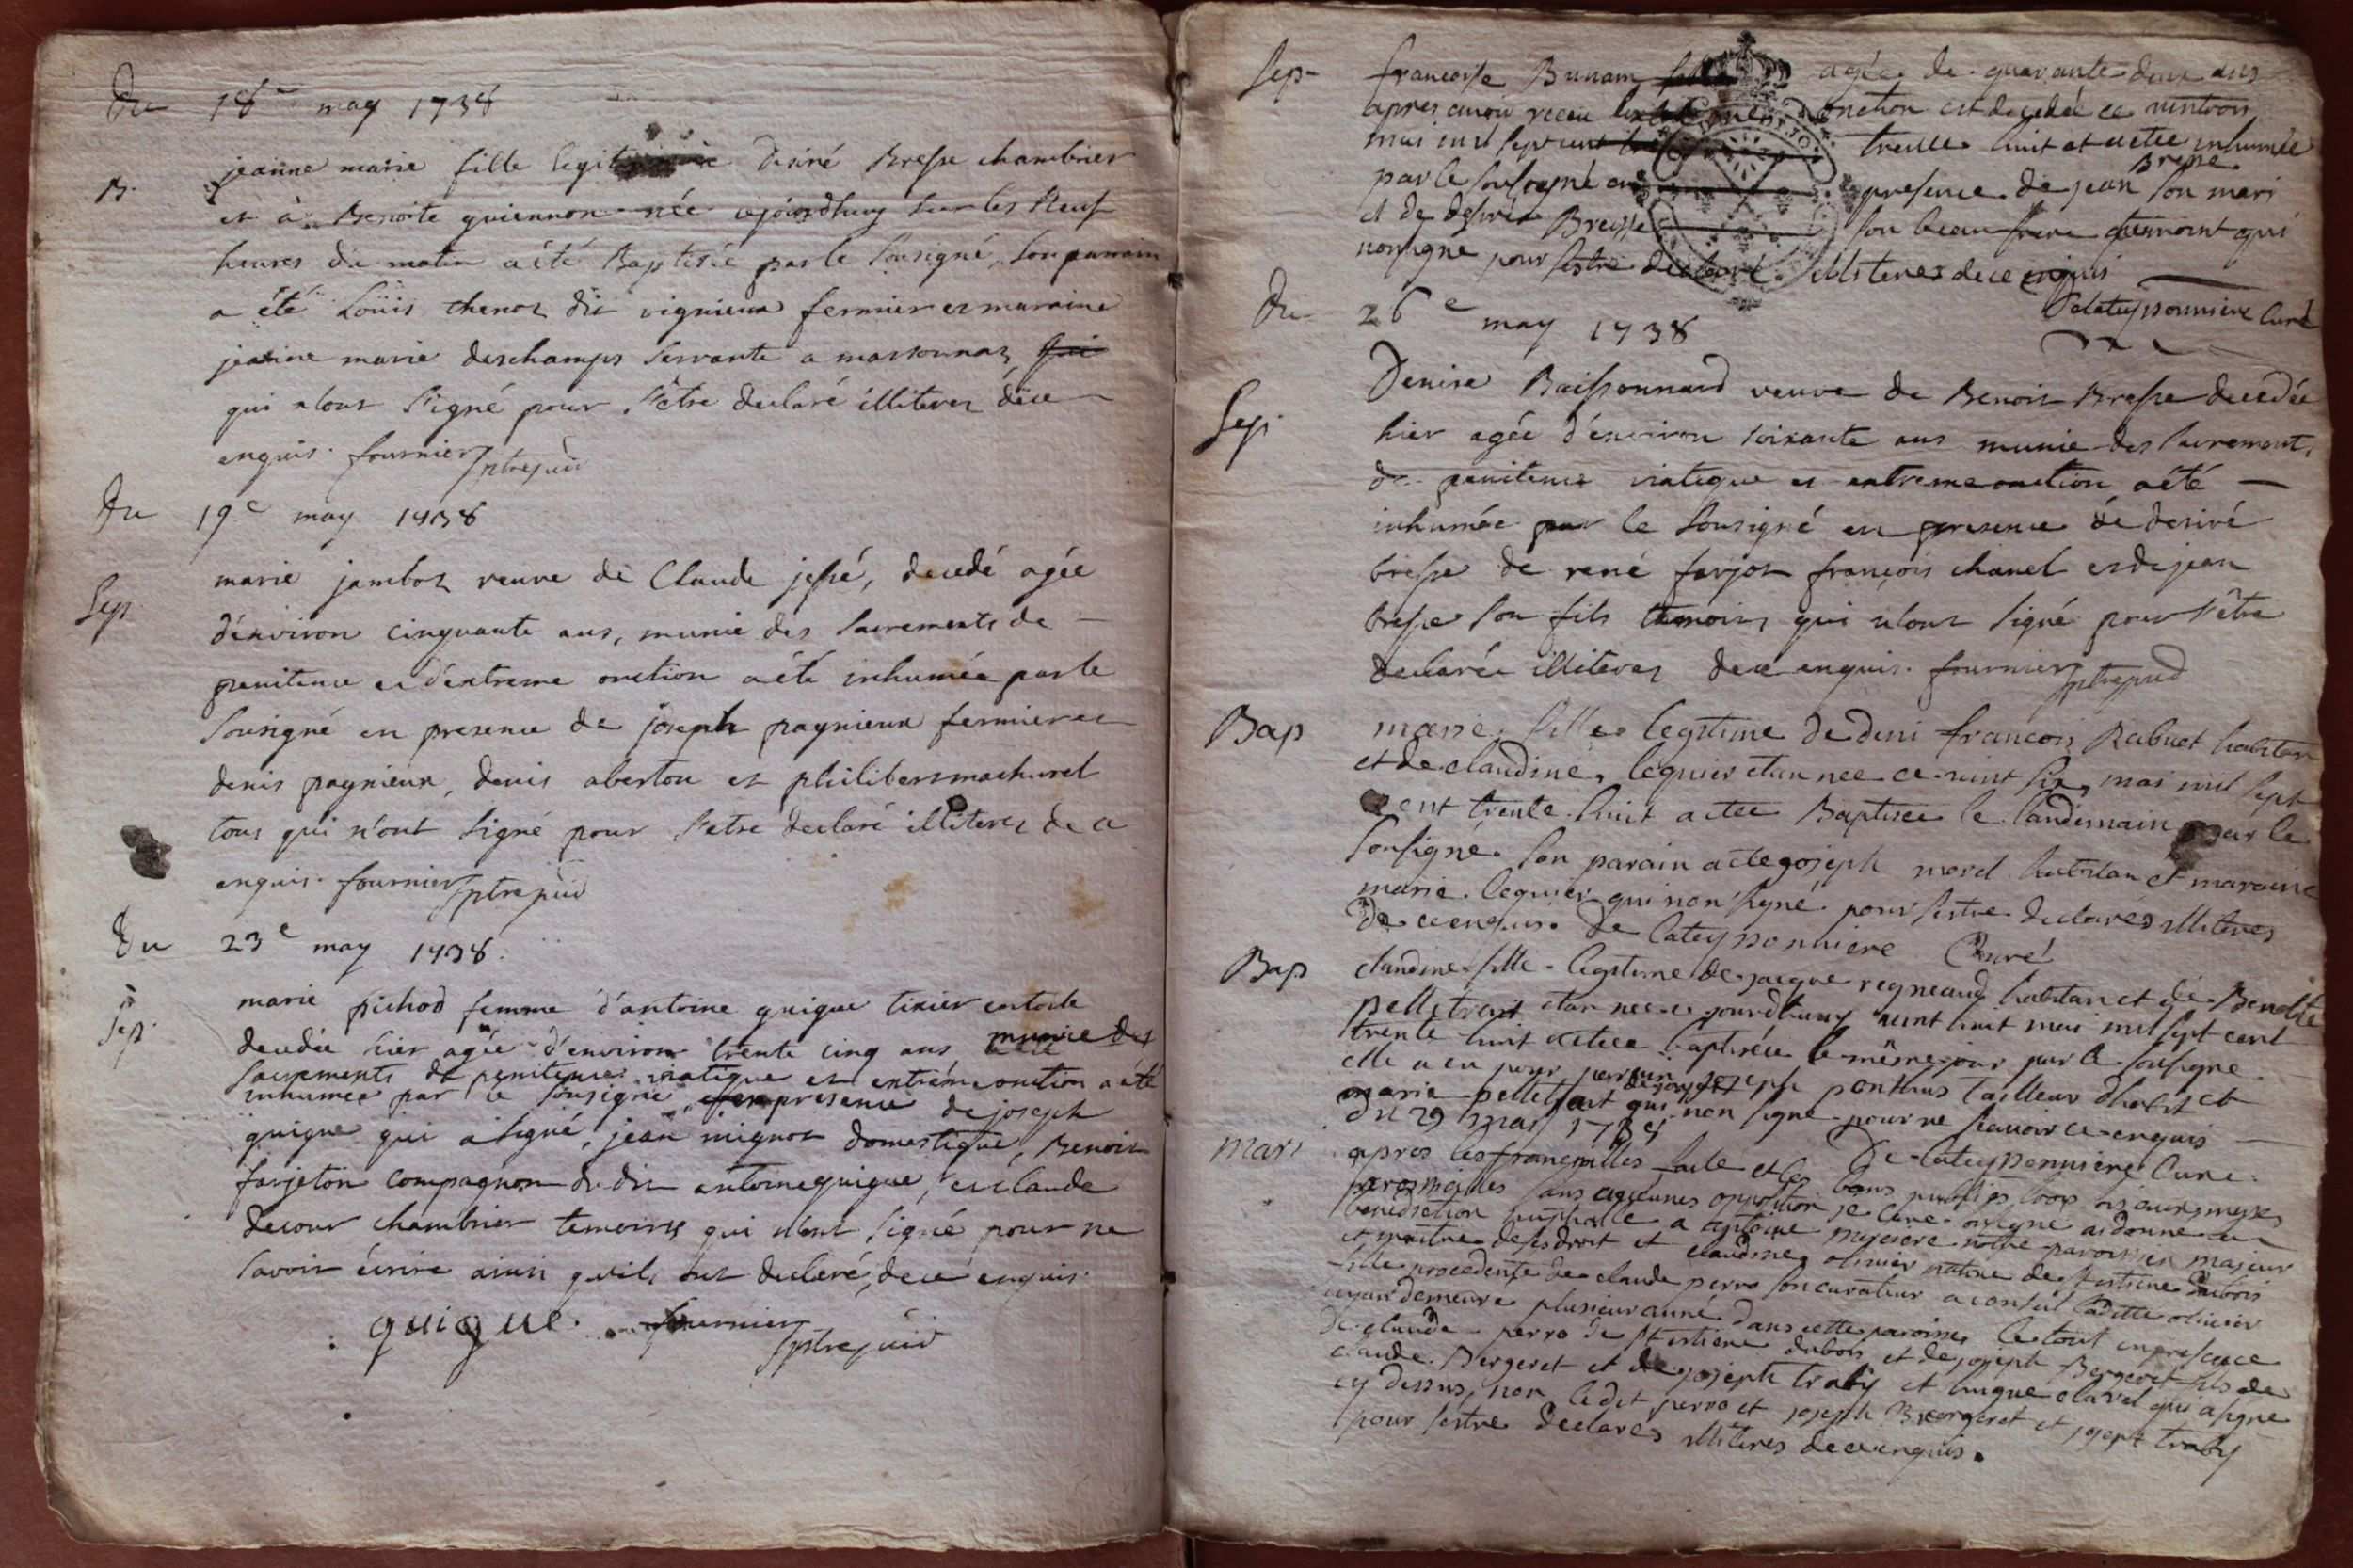 Du 18e may 1738
B. jeanne marie fille legitime desiré Bresse chambrier
et à Benoite guiennon née aujourdhuy sur les Neuf
heures du matin a été Baptisée par le sousigné, son parrain
a été Loüis thenoz dit vignieux fermier et maraine
jeanne marie deschamps servante a massonnaz
qui n'ont signé pour s'etre declaré illiterez de ce
enquis. fournier
Du 19e may 1738
Sep. marie jamboz veuve de Claude jessé, decedé agée
d'environ cinquante ans, munie des sacrements de
penitence et d'extreme onction a été inhumée par le
sousigné en presence de joseph pagnieux fermier et
denis pagnieux, denis aberton et philibert machurel
tous qui n'ont signé pour s'etre declaré illiterez de ce
enquis. fournier
Du 23e may 1738.
Sep. marie pichod femme d'antoine guigue tixier en toile
decedée hier agée d'environ trente cinq ans munie des
sacrements de penitence viatique et extréme onction a été
inhumée par le sousigné en presence de joseph
guigue qui a signé, jean mignot domestique, Benoit
farjeton compagnon du dit antoine guigue, et claude
decour chambrier temoins qui n'ont signé pour ne
savoir écrire ainsi qu'ils ont declaré, de ce enquis
guigue. fournier
Sep francoise Bunam agée de quarante deux ans
apres avoir receu onction est decedée ce vintrois
mai mil sept cent trente huit et a etee inhumée
par le sousigné en presence de jean Bresse son mari
et de desiré Bresse son beau frere qui
non signe pour sestre declaré illiteres de ce enquis
Delateyssonniere Curé
Du 26e may 1738
Sep. Denise Baissonnard veuve de Benoit Bresse decedée
hier agée d'environ soixante ans munie des sacrements
de penitence viatique et extreme onction a été
inhumée par le sousigné en presence de desiré
bresse de rené farjot françois chanel et de jean
bresse son fils temoins qui n'ont signé pour s'être
declarée illiterez de ce enquis. fournier
Bap marie fille legitime de deni francois Rabuet habitan
et de claudine lequier etan nee ce vint six mai mil sept
cent trente huit a etee Baptisee le landemain par le
sousigne son parain a ete joseph morel habitan et maraine
marie lequier qui non signé pour sestre declarés illiteres
de ce enquis. De Lateyssonniere Curé
Bap claudine fille legitime de jacque regneaud habitan et de Benoitte
pelletrat etan nee ce jourdhuy vint huit mai mil sept cent
trente huit a etee baptisée le même jour par le sousigne
elle a eu pour parrain joseph ponthus tailleur dhabit et
marie pelletrat qui non signe pour ne scavoir ce enquis
Du 29 mai 1738 De Lateyssonniere Cure.
Mari apres les fiancailles faite et les bans publies
sans aucunes opposition je cure sousigne ai donne la
benediction nuptialle a antoine notre paroissien majeur
et maitre de ses droit et claudine olivier native de
fille procedente de claude perro son curateur a conseil ladite olivier
ayan demeure plusieur anné dans cette paroisse le tout en presence
de claude perro de dubois et de joseph Bergeret fils de
claude Bergeret et de joseph traby et hugue clavel qui a signe
cy dessus, non ledit perro et joseph Bergeret et joseph traby
pour sestre declarés illiteres de ce enquis.